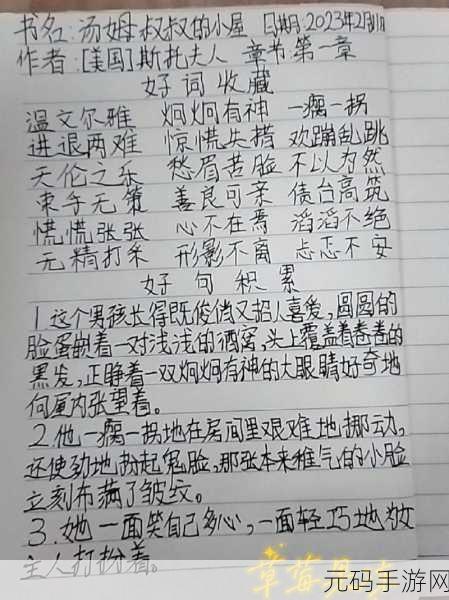 书名:汤姆叔叔的小屋 日期:2023年2月1日
作者:[美国]斯托夫人 章节:第一章
好词收藏
温文尔雅 炯炯有神 一瘸一拐
进退两难 惊慌失措 欢蹦乱跳
天伦之乐 愁眉苦脸 不以为然
束手无策 善良可亲 债台高筑
慌慌张张 心不在焉 滔滔不绝
无精打采 形影不离 忐忑不安
好句积累
1.这个男孩长得既俊俏又招人喜爱,圆圆的
脸蛋嵌着一对浅浅的酒窝,头上覆盖着卷卷的
黑发,正睁着一双炯炯有神的大眼睛好奇地
向屋内张望着。
2.他一瘸一拐地在房间里艰难地挪动,
还使劲地扮起鬼脸,那张本来稚气的小脸
立刻布满了皱纹。
3.她一面笑自己多心,一面轻巧地给女
主人打扮着。
草莓
元码手游网